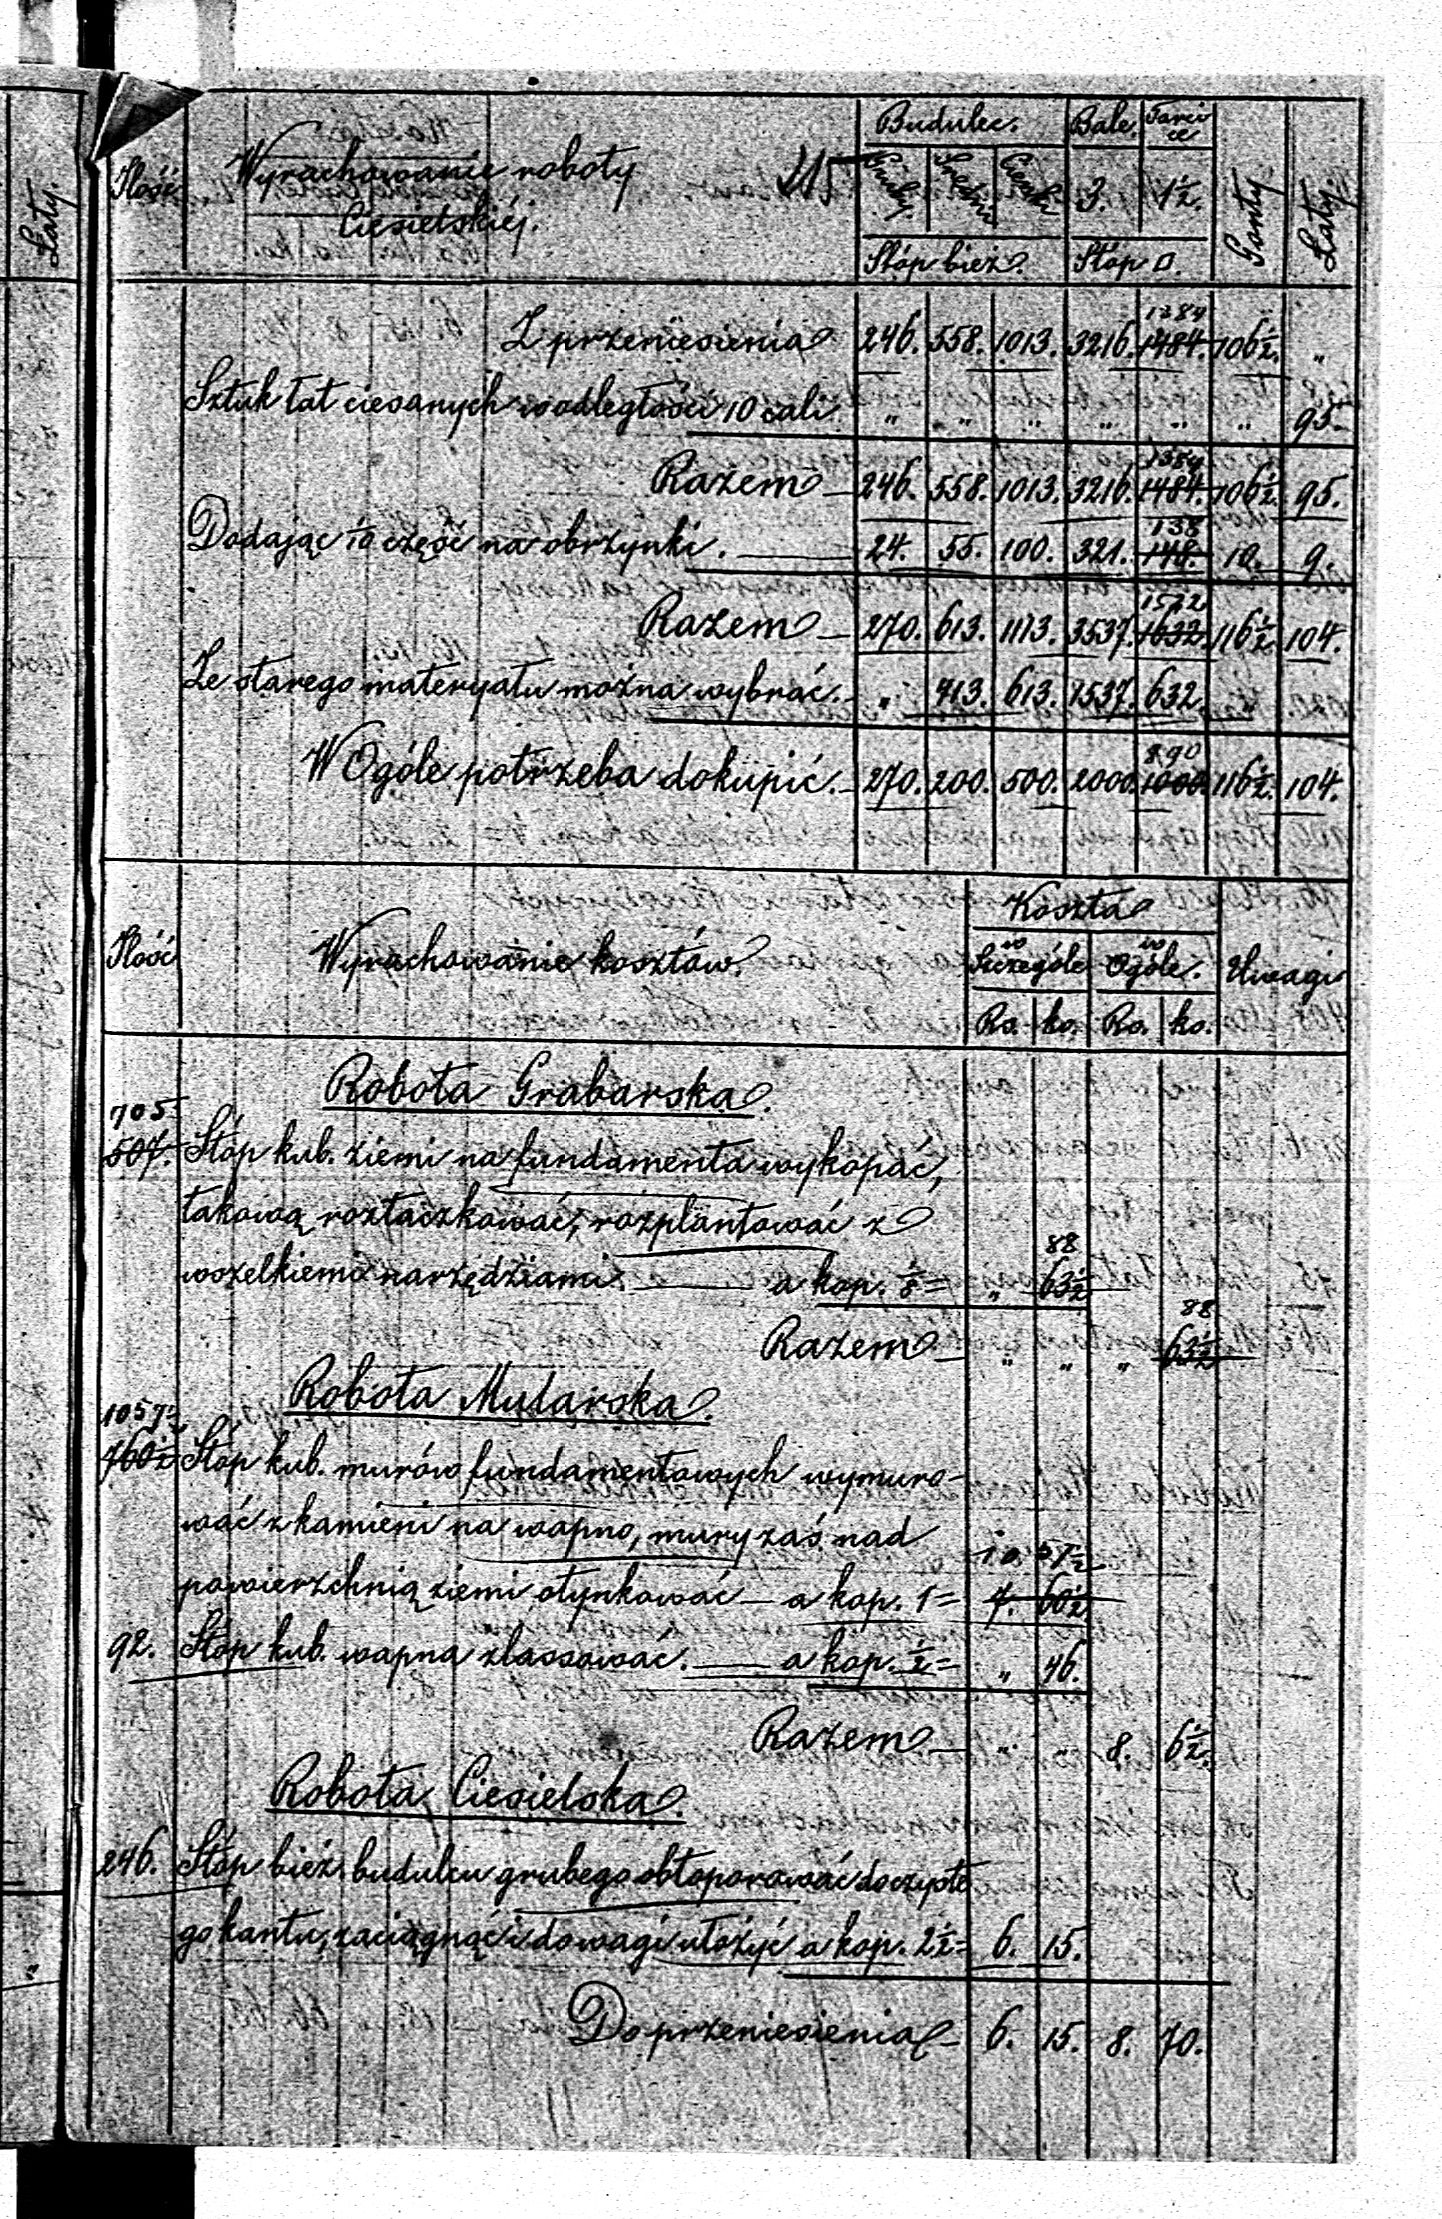 Łaty.
Ilość
Wyrachowanie roboty
Ciesielskiéj.
215
Budulec.
Bale.
Tarcice
Gruby
Średni
Cienki
3.
1½.
Gonty
Łaty.
Stóp bież.
Stóp □.
1384
Z przeniesienia 246. 558. 1013. 3216. 1484. 106½. „
Sztuk łat ciesanych w odległości 10 cali „ „ „ „ „ „ 95
1384
Razem 246. 558. 1013. 3216. 1484. 106½. 95.
138
Dodając 10 część na obrzynki. 24. 55. 100. 321. 148. 10. 9.
1522
Razem 270. 613. 1113. 3537. 1632. 116½. 104.
Ze starego materyału można wybrać. „ 413. 613. 1537. 632. „
890
W Ogóle potrzeba dokupić. 270. 200. 500. 2000. 1000. 116½. 104.
Ilość
Wyrachowanie kosztów.
Koszta
w Szczególe
w Ogóle.
Uwagi
Rs. ko. Rs. ko.
Robota Grabarska.
705
507. Stóp kub. ziemi na fundamenta wykopać,
takową roztaczkować, rozplantować z
88
wszelkiemi narzędziami. a kop. ⅛ = „ 63½
88
Razem „ „ „ 63½
Robota Mularska.
1057½
760½ Stóp kub. murów fundamentowych wymuro-
wać z kamieni na wapno, mury zaś nad
10. 57½
powierzchnią ziemi otynkować a kop. 1 = 7. 60½
92. Stóp kub. wapna zlassować. a kop. ½ = „ 46.
Razem „ „ 8. 6½.
Robota Ciesielska.
246. Stóp bież. budulcu grubego obtoporować do czyste
go kantu, zaciągnąć i do wagi ułożyć a kop. 2½ = 6. 15.
Do przeniesienia 6. 15. 8. 70.